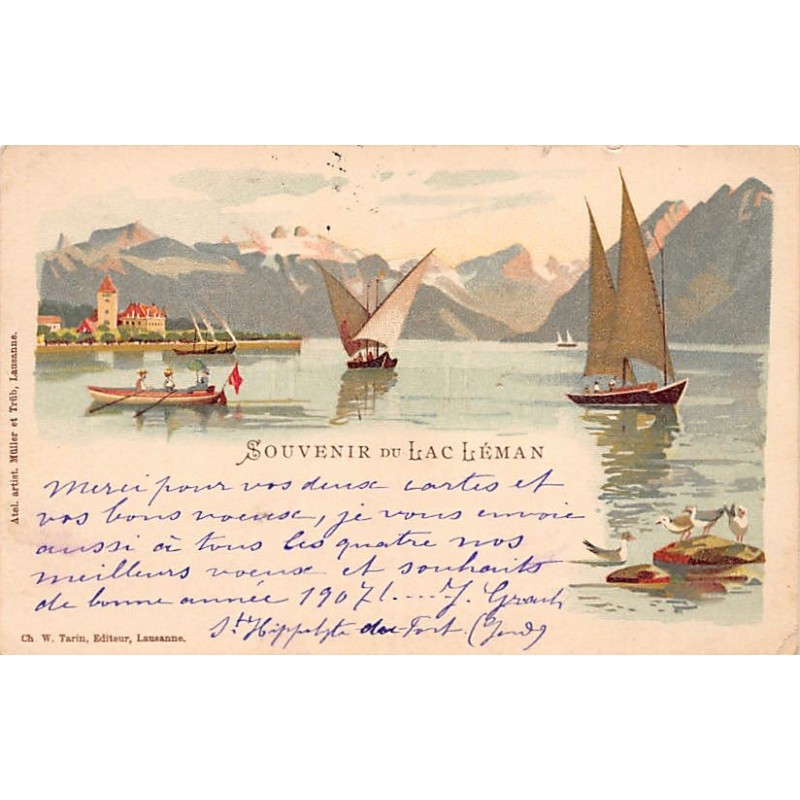 SOUVENIR DU LAC LÉMAN
Merci pour vos deux cartes et
vos bons voeux, je vous envoie
aussi à tous les quatre nos
meilleurs voeux et souhaits
de bonne année 1907!....J.
St Hippolyte du Fort (Gard)
Ch. W. Tarin, Editeur, Lausanne.
Atel. artist. Müller et Trüb, Lausanne.